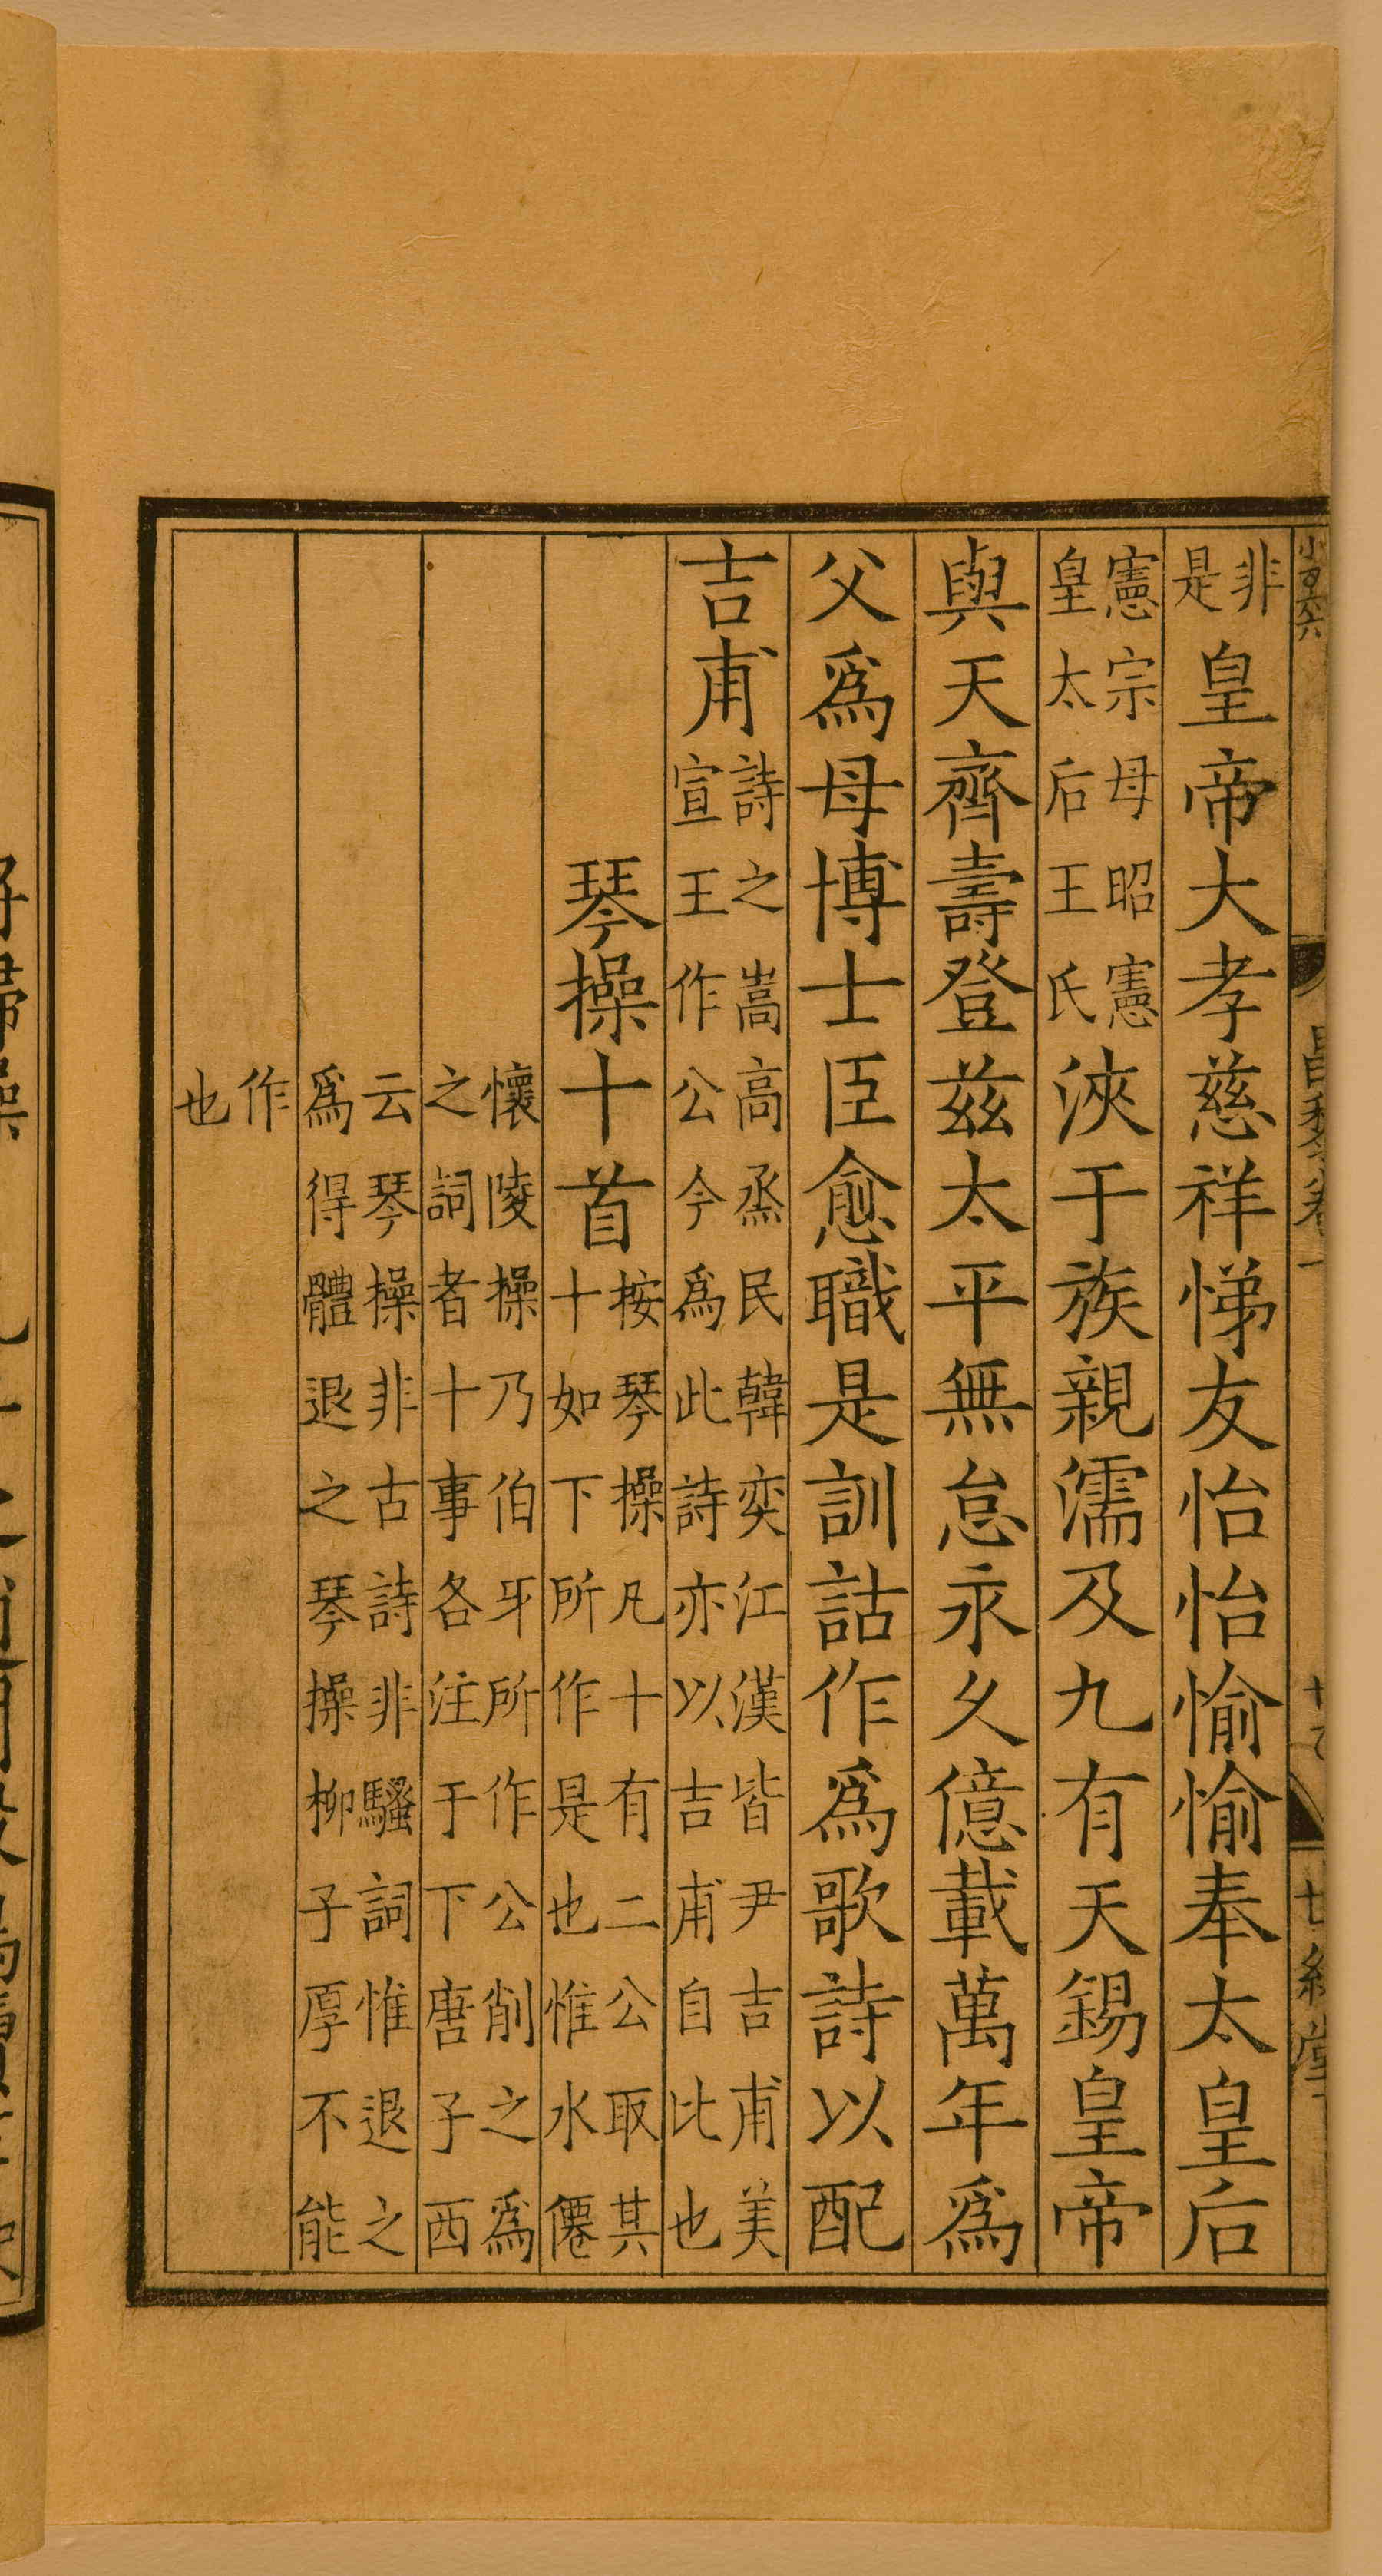 非是皇帝大孝慈祥悌友怡怡愉愉奉太皇后
憲宗母昭憲皇太后王氏浹于族親濡及九有天錫皇帝
與天齊壽登茲太平無怠永久億載萬年爲
父爲母博士臣愈職是訓詁作爲歌詩以配
吉甫詩之嵩高烝民韓奕江漢皆尹吉甫美宣王作公今爲此詩亦以吉甫自比也
琴操十首按琴操凡十有二公取其十如下所作是也惟水僊
懷陵操乃伯牙所作公削之爲之詞者十事各注于下唐子西
云琴操非古詩非騷詞惟退之爲得體退之琴操柳子厚不能
作也